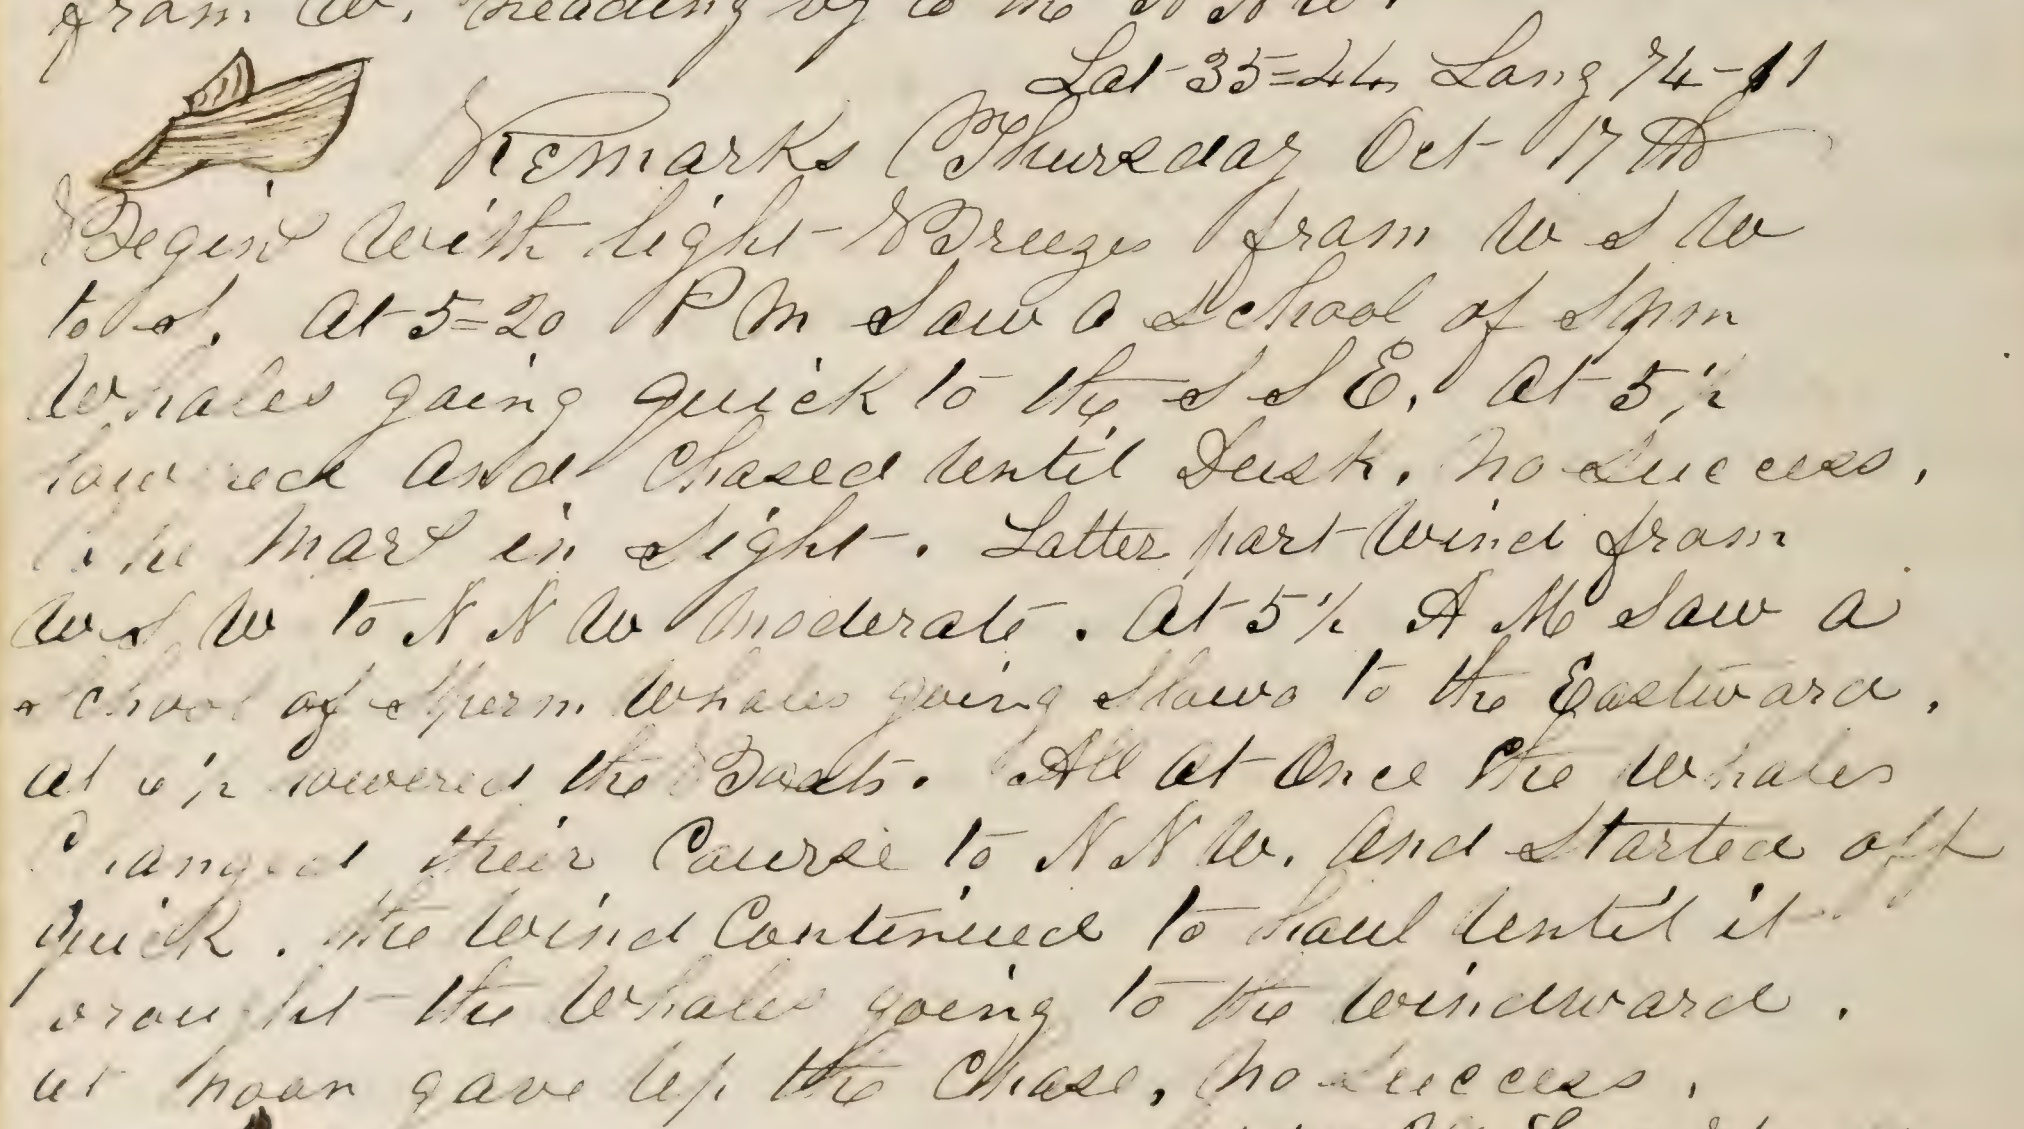 from W. heading up to the N N W.
Lat 35=44 Long 74-11
Remarks Thursday Oct 17th
Begins with light Breezes from W S W
to S. At 5=20 P M Saw a School of Spm
Whales going quick to the S S E. At 5½
lowered and Chased Until Dusk. No Success.
The in Sight. Latter part Wind from
W S W to N N W Moderate. At 5½ A M Saw a
School of Sperm Whales going Slow to the Eastward.
at 6½ lowered the Boats. All at Once the Whales
Changed their Course to N N W. And Started off
quick. the Wind Continued to haul Until it
brought the Whales going to the windward.
at noon gave Up the Chase. No Success.